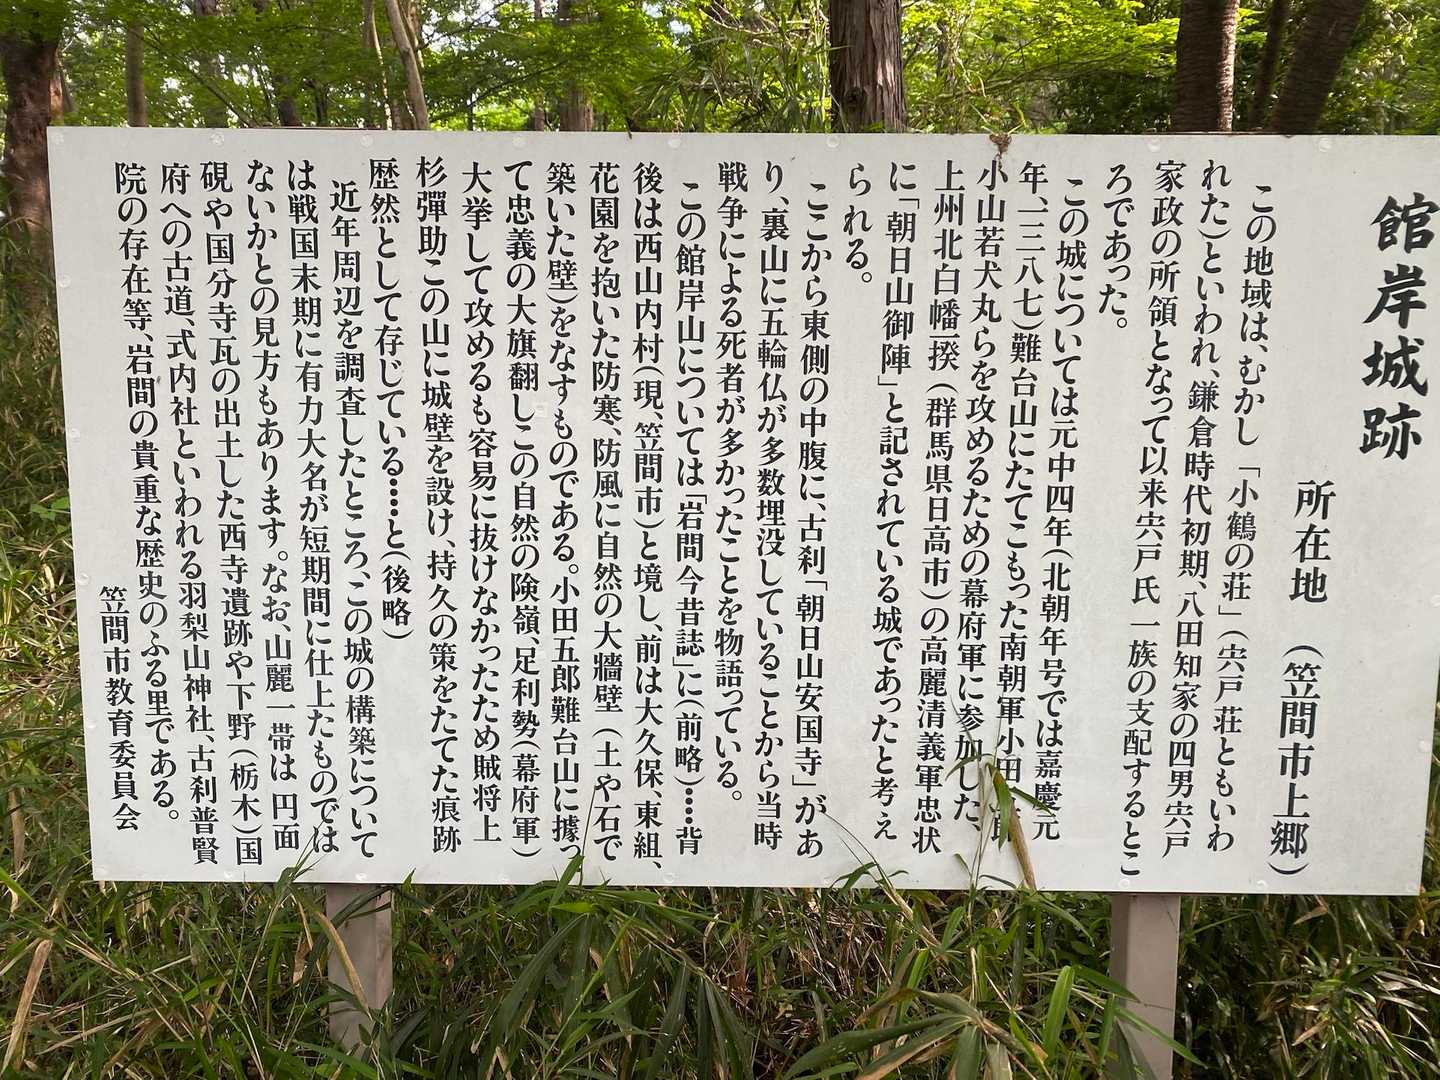 館岸城跡
所在地 (笠間市上郷)
この地域は、むかし「小鶴の荘」(宍戸荘ともいわ
れた)といわれ、鎌倉時代初期、八田知家の四男宍戸
家政の所領となって以来宍戸氏一族の支配するとこ
ろであった。
この城については元中四年(北朝年号では嘉慶元
年、一三八七)難台山にたてこもった南朝軍小田
小山若犬丸らを攻めるための幕府軍に参加した、
上州北白幡一揆(群馬県日高市)の高麗清義軍忠状
に「朝日山御陣」と記されている城であったと考え
られる。
ここから東側の中腹に、古刹「朝日山安国寺」があ
り、裏山に五輪仏が多数埋没していることから当時
戦争による死者が多かったことを物語っている。
この館岸山については「岩間今昔誌」に(前略)……背
後は西山内村(現、笠間市)と境し、前は大久保、東組、
花園を抱いた防寒、防風に自然の大牆壁(土や石で
築いた壁)をなすものである。小田五郎難台山に據っ
て忠義の大旗翻しこの自然の険嶺、足利勢(幕府軍)
大挙して攻めるも容易に抜けなかったため賊将上
杉彈助この山に城壁を設け、持久の策をたてた痕跡
歴然として存じている……と(後略)
近年周辺を調査したところ、この城の構築について
は戦国末期に有力大名が短期間に仕上たものでは
ないかとの見方もあります。なお、山麗一帯は円面
硯や国分寺瓦の出土した西寺遺跡や下野(栃木)国
府への古道、式内社といわれる羽梨山神社、古刹普賢
院の存在等、岩間の貴重な歴史のふる里である。
笠間市教育委員会